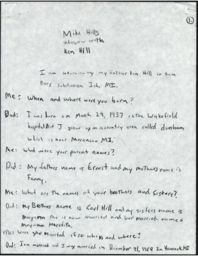 Mike Hill
interview with
Ken Hill
I am interviewing my father Ken Hill in
Me: When and where were you born?
Dad: I was born on March 29, 1937 in the Wakefield
hospital but I grew up in country area called
which is near Marenisco MI.
Me: What were your parents names?
Dad: My fathers name is Ernest and my mothers name is
Fanny.
Me: What are the names of your brothers and sisters?
Dad: My Brothers name is Carl Hill and my sisters name is
she is now married and her married name is
Meredith
Me: Were you married, if so when and where?
Dad: I am married and I was married in December 1958 In